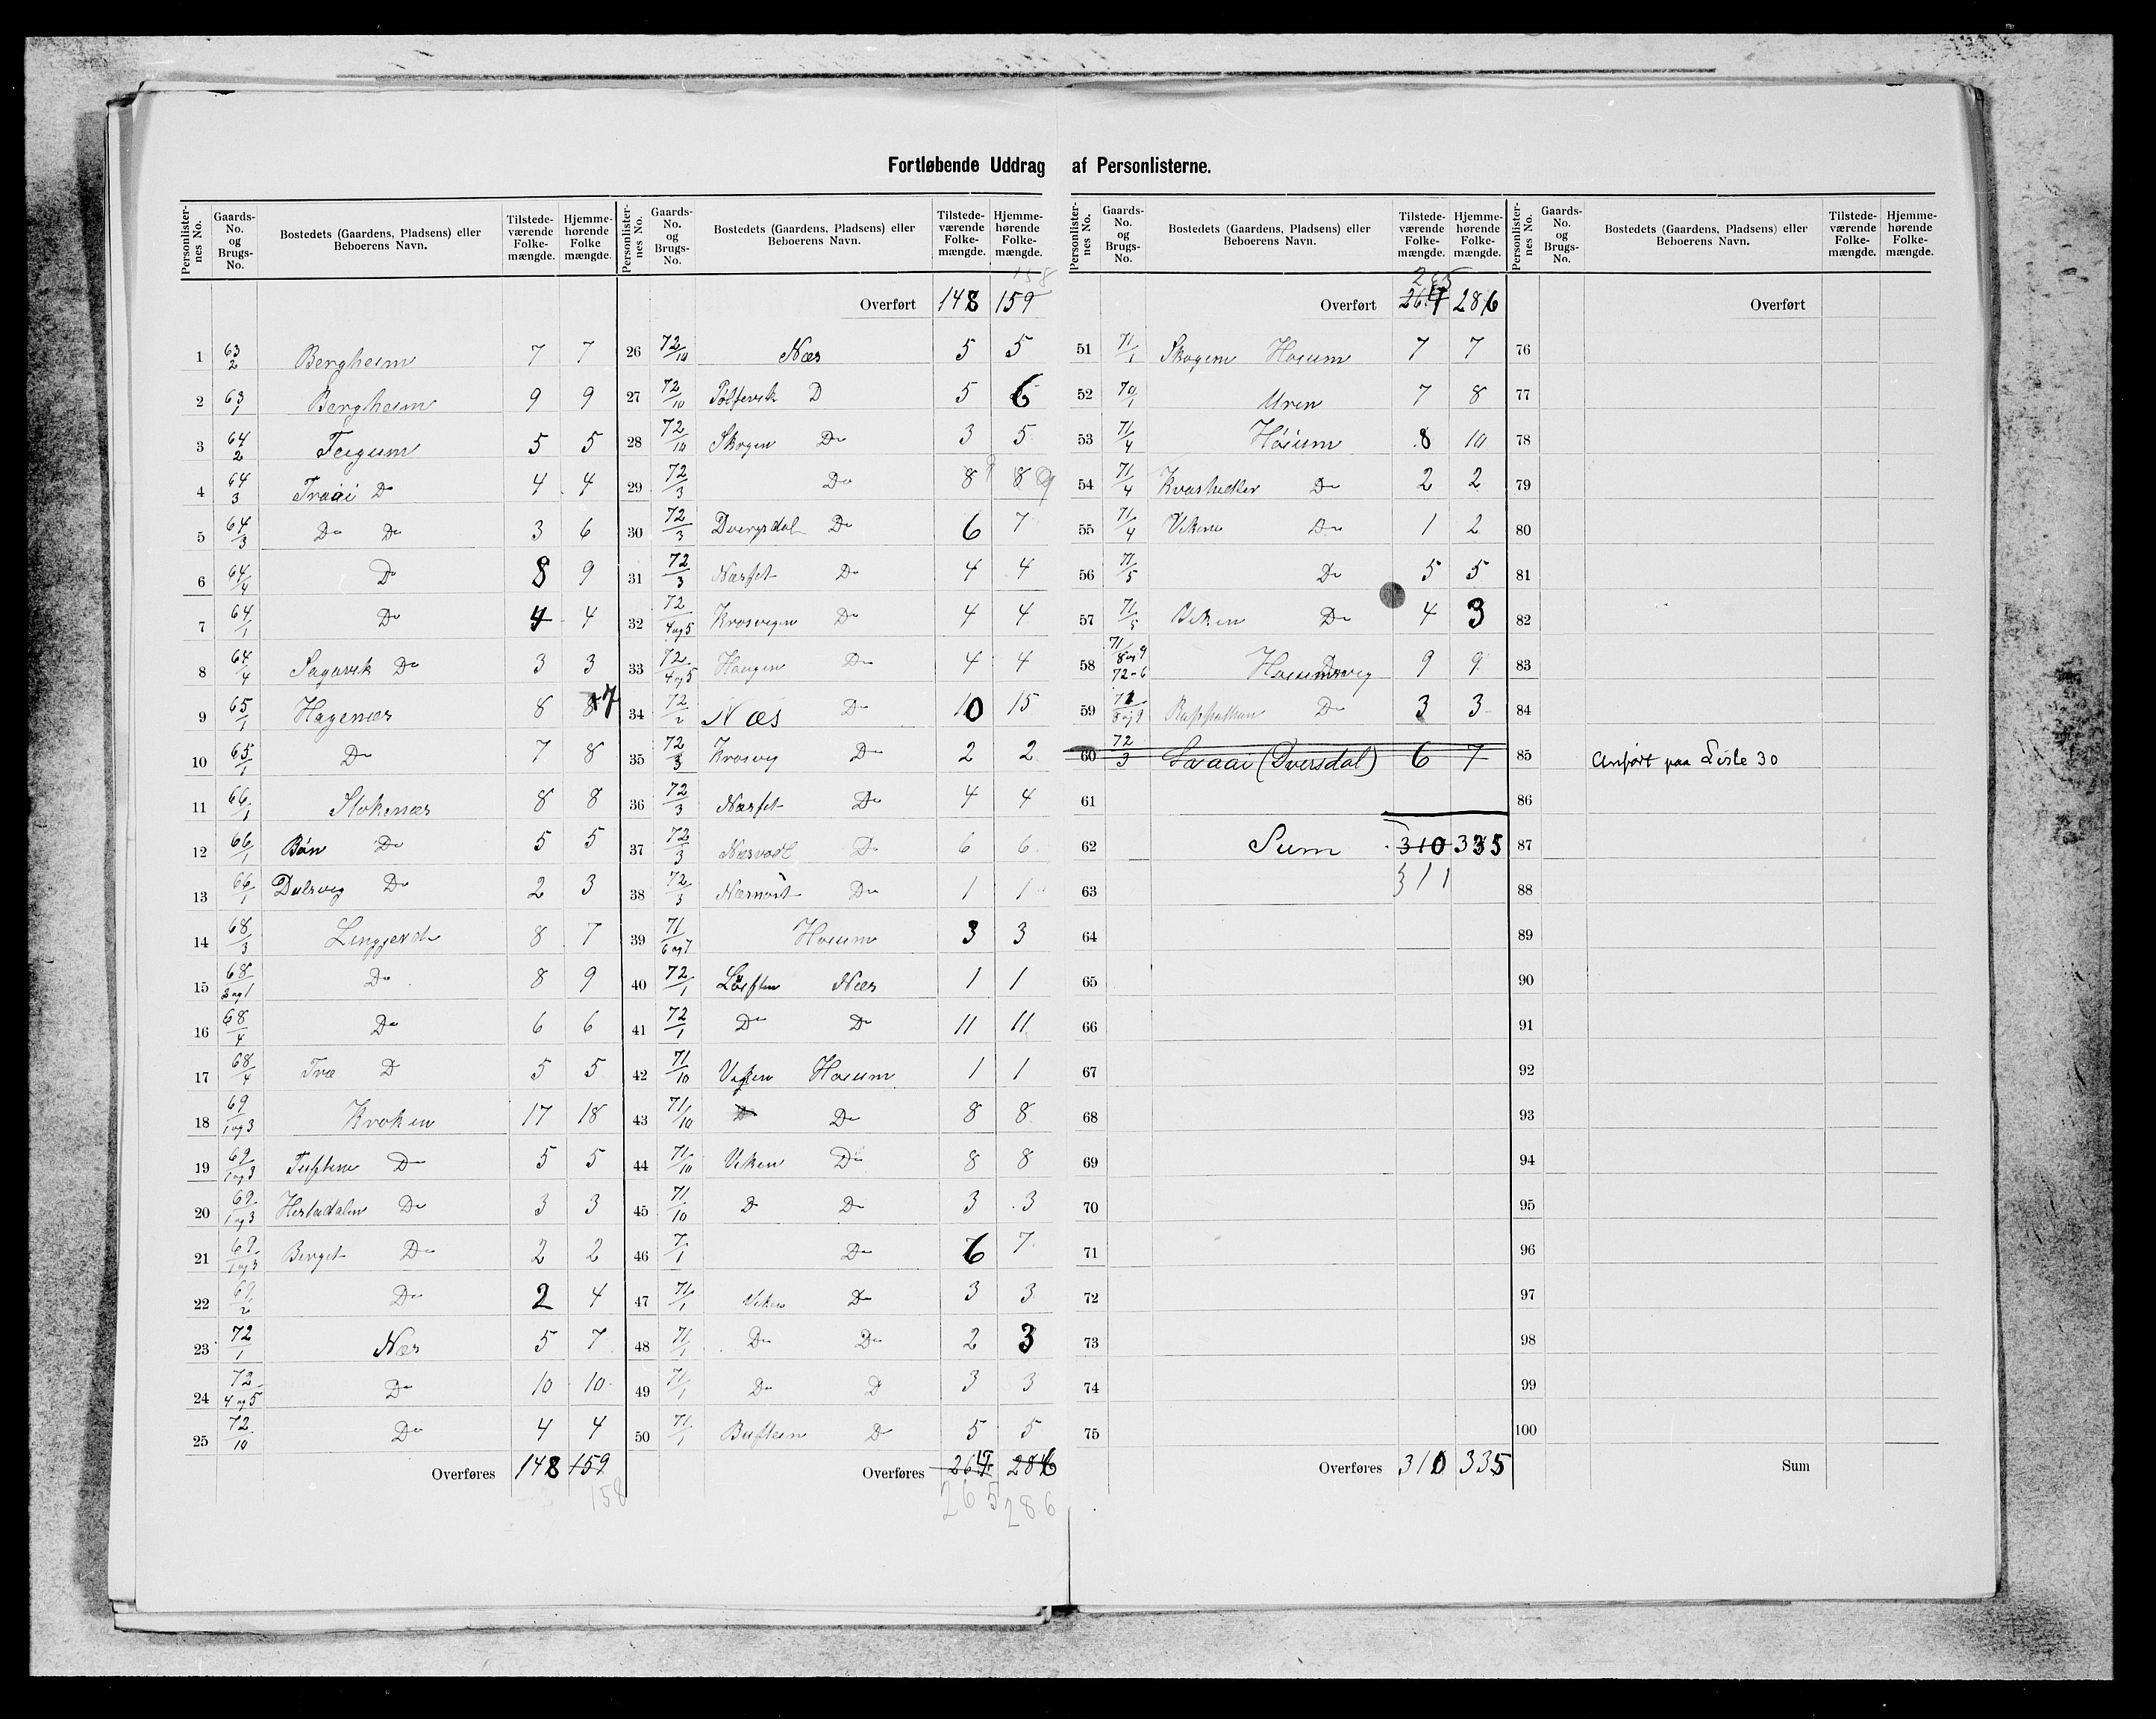 Fortløbende Uddrag af Personlisterne.
Personlister-nes No. | Gaards-No. og Brugs-No. | Bostedets (Gaardens, Pladsens) eller Beboerens Navn. | Tilstede-værende Folke-mængde. | Hjemme-hørende Folke mængde.
1 63/2 Bergheim 7 7
2 63/1 Bergheim 9 9
3 64/2 Feigum 5 5
4 64/3 Traai Do 4 4
5 64/3 Do Do 3 6
6 64/4 Do 8 9
7 64/1 Do 4 4
8 64/4 Sagavik Do 3 3
9 65/1 Hagenæs 8 8 7
10 65/1 Do 7 8
11 66/1 Stokenæs 8 8
12 66/1 Bøn Do 5 5
13 66/1 Dulsvig Do 2 3
14 68/3 Linggjerde 8 7
15 68/2 og 1 Do 8 9
16 68/4 Do 6 6
17 68/4 Træ D 5 5
18 69/1 og 3 Kroken 17 18
19 69/1 og 3 Tuftene Do 5 5
20 69/1 og 3 Hestadalen Do 3 3
21 69/1 og 3 Berget Do 2 2
22 69/2 Do 2 4
23 72/1 Næs 5 7
24 72/4 og 5 Do 10 10
25 72/10 Do 4 4
Overføres 148 159
158
Personlister-nes No. | Gaards-No. og Brugs-No. | Bostedets (Gaardens, Pladsens) eller Beboerens Navn. | Tilstede-værende Folke-mængde. | Hjemme-hørende Folke-mængde.
158
Overført 148 159
26 72/10 Næs 5 5
27 72/10 D 5 6
28 72/10 Skogen Do 3 5
29 72/3 Do 8 9 8 9
30 72/3 Dvergsdal Do 6 7
31 72/3 Næsset Do 4 4
32 72/4 og 5 Krosvigen Do 4 4
33 72/4 og 5 Haugen Do 4 4
34 72/2 Næs Do 10 15
35 72/3 Krosvig Do 2 2
36 72/3 Næsset Do 4 4
37 72/3 Do 6 6
38 72/3 Do 1 1
39 71/6 og 7 Høium 3 3
40 72/1 Næs 1 1
41 72/1 Do Do 11 11
42 71/10 Høium 1 1
43 71/10 D Do 8 8
44 71/10 Viken Do 8 8
45 71/10 D Do 3 3
46 7/1 Do 6 7
47 71/1 Viken Do 3 3
48 71/1 Do Do 2 3
49 71/1 Do D 3 3
50 71/1 D 5 5
Overføres 264 286
265 286
Personlister-nes No. | Gaards-No. og Brugs-No. | Bostedets (Gaardens, Pladsens) eller Beboerens Navn. | Tilstede-værende Folke-mængde. | Hjemme-hørende Folke-mængde.
265
Overført 264 286
51 71/1 Skogen Høium 7 7
52 70/1 Uren 7 8
53 71/4 Høium 8 10
54 71/4 Kvashedler Do 2 2
55 71/4 Vikene Do 1 2
56 71/5 Do 5 5
57 71/5 Viken Do 4 3
58 71/8 og 9 72-6 Høiumsvig 9 9
59 71/8 og 9 Do 3 3
60 72/3 (Dversdal) 6 7
61
62 Sum 310 335
63 311
64
65
66
67
68
69
70
71
72
73
74
75
Overføres 310 335
Personlister-nes No. | Gaards-No. og Brugs-No. | Bostedets (Gaardens, Pladsens) eller Beboerens Navn. | Tilstede-værende Folke-mængde. | Hjemme-hørende Folke-mængde.
Overført
76
77
78
79
80
81
82
83
84
85 Anført paa Liste 30
86
87
88
89
90
91
92
93
94
95
96
97
98
99
100
Sum